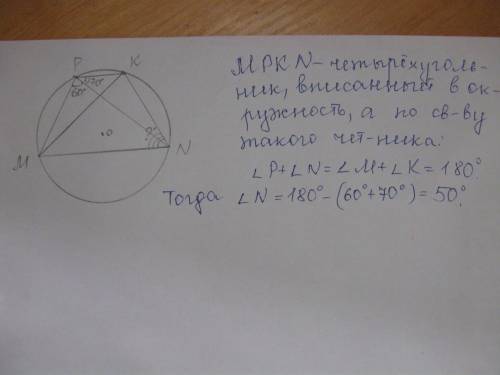 P K
60° 70°
?
O
M N
MPKN - четырёхуголь-
ник, вписанный в ок-
ружность, а по св-ву
такого чет-ника:
∠P+∠N=∠M+∠K=180°.
Тогда ∠N=180°-(60°+70°)=50°.